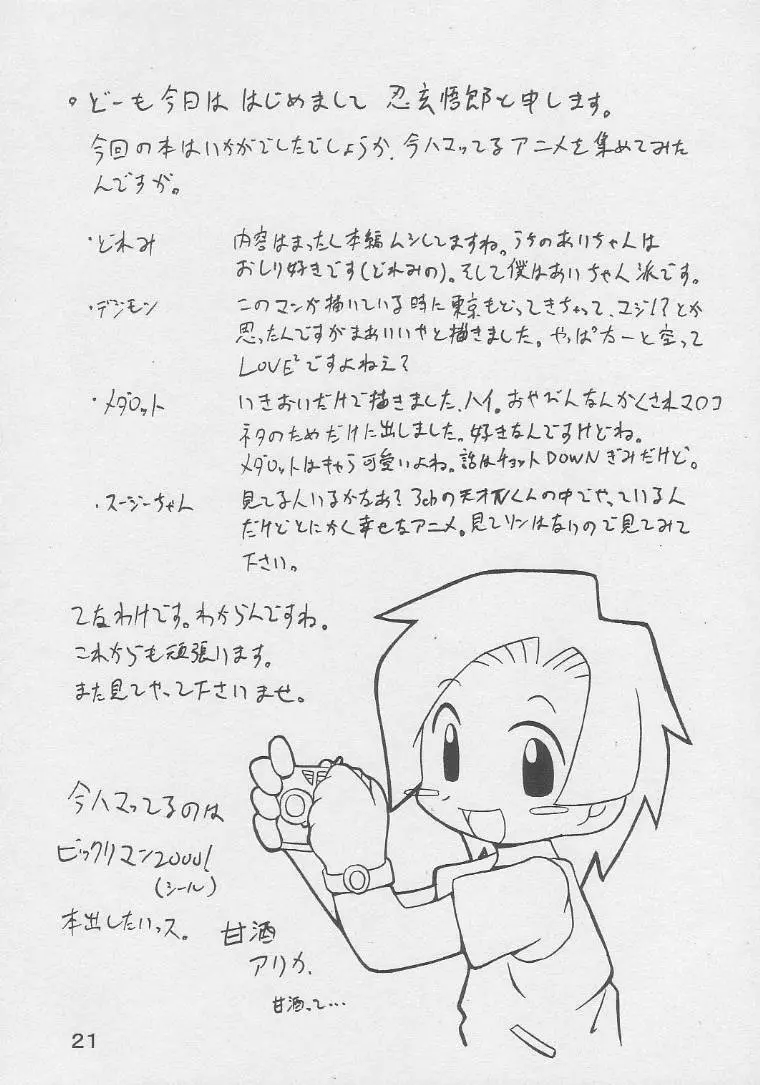 。どーも今日は はじめまして 忍玄悟郎と申します。
今回の本はいかがでしたでしょうか、今ハマってるアニメを集めてみた
んですが。
・どれみ 内容はまったく本編ムシしてますね。うちのあいちゃんは
おしり好きです(どれみの)。そして僕はあいちゃん派です。
・デジモン このマンガ描いている時に東京もどってきちゃって、マジ!?とか
思ったんですがまあいいやと描きました。やっぱ太一と空って
LOVE²ですよねえ?
・メダロット いきおいだけで描きました、ハイ。おやびんなんかくされマロコ
ネタのためだけに出しました。好きなんですけどね。
メダロットはキャラ可愛いよね。話はチョットDOWNぎみだけど。
・スージーちゃん 見てる人いるかなあ?3chの天才てれびくんの中でやっている
だけどとにかく幸せなアニメ。見てソンはないので見てみて
下さい。
てなわけです。わからんですね。
これからも頑張ります。
また見てやって下さいませ。
今ハマってるのは
ビックリマン2000!
(シール)
本出したいっス。
甘酒
アリカ、
甘酒って…
21